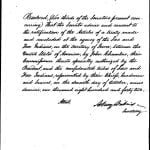 Resolved, (two thirds of the Senators present con-
curring) that the Senate advise and consent to
the ratification of the Articles of a treaty made
and concluded at the agency of the Sac and
Fox Indians, in the Territory of Iowa, between the
United States of America, by John Chambers, their
Commissioner thereto specially authorized by the
President, and the confederated tribes of Sac and
Fox Indians, represented by their Chiefs, headmen
and braves, on the eleventh day of October, Anno
Domini, one thousand eight hundred and forty two.
Attest,
Asbury Dickins
Secretary